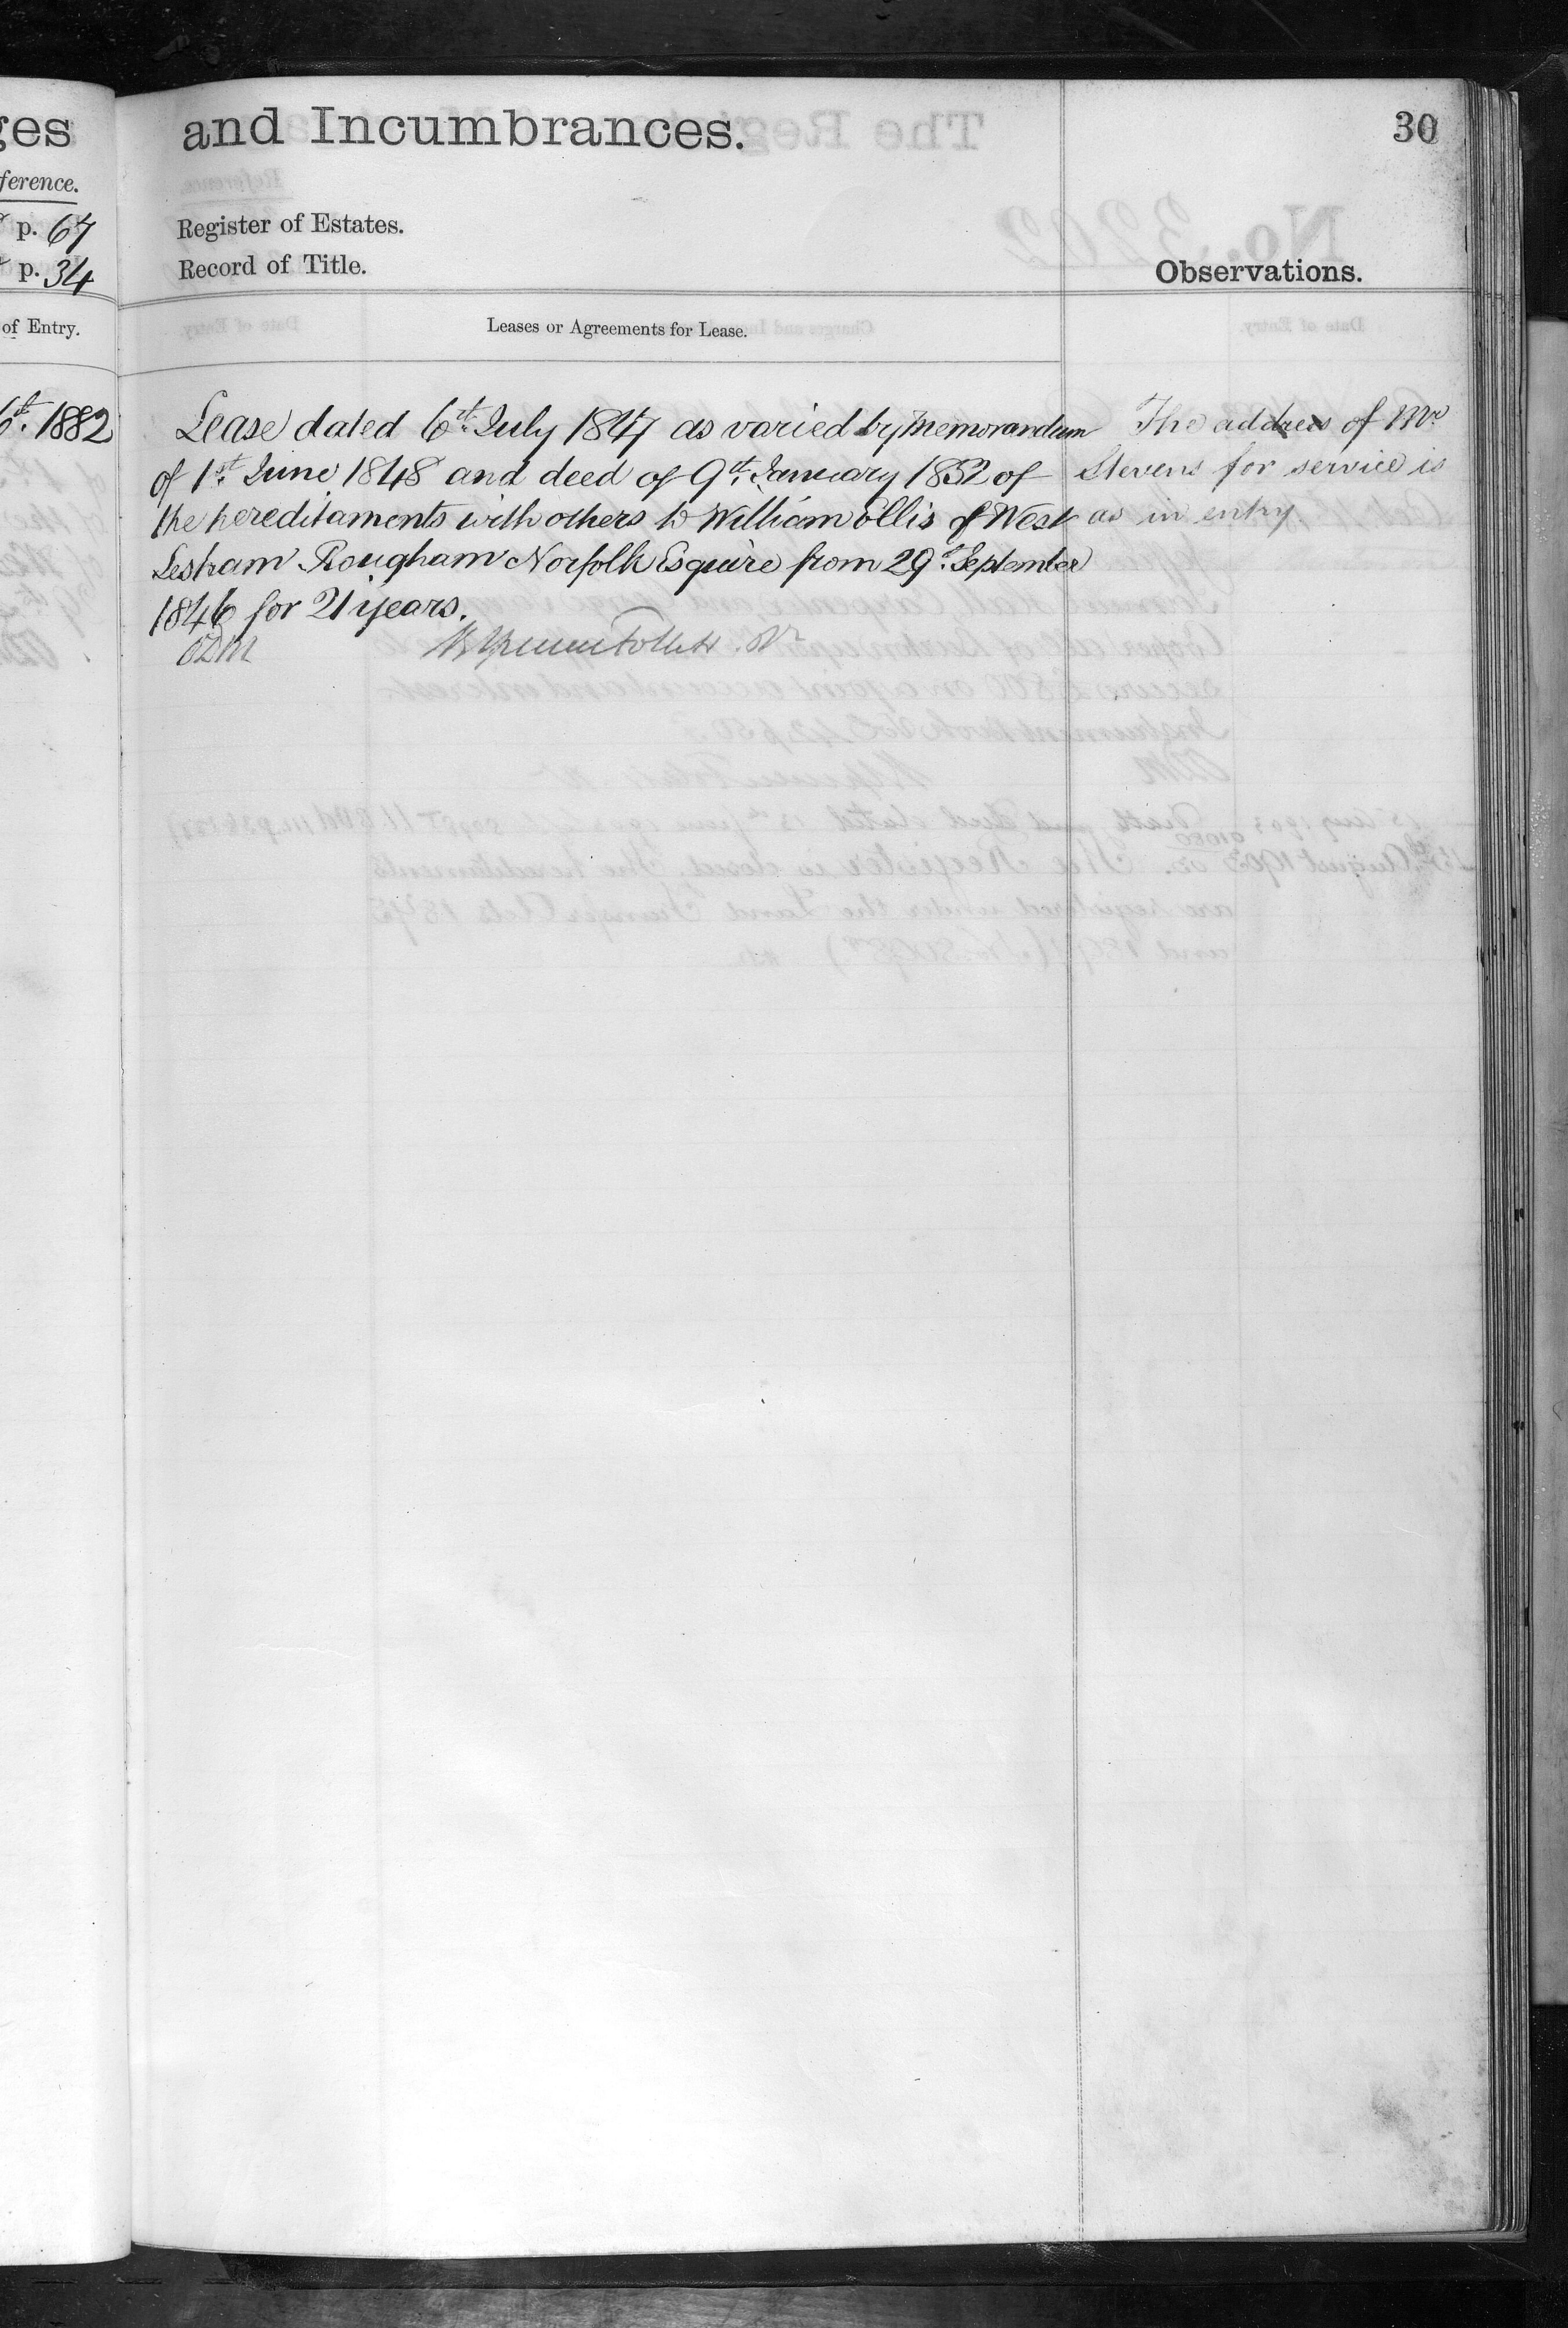 ges
ference.
p. 67
p. 34
of Entry.
6th. 1882
and Incumbrances.
30
Register of Estates.
Record of Title.
Observations.
Leases or Agreements for Lease.
Lease dated 6th July 1847 as varied by memorandum
of 1st June 1848 and deed of 9th January 1852 of
the hereditaments with others to William Ollis of West
Lexham Rougham Norfolk Esquire from 29th September
1846 for 21 years.
The address of Mr
Stevens for service is
as in entry.